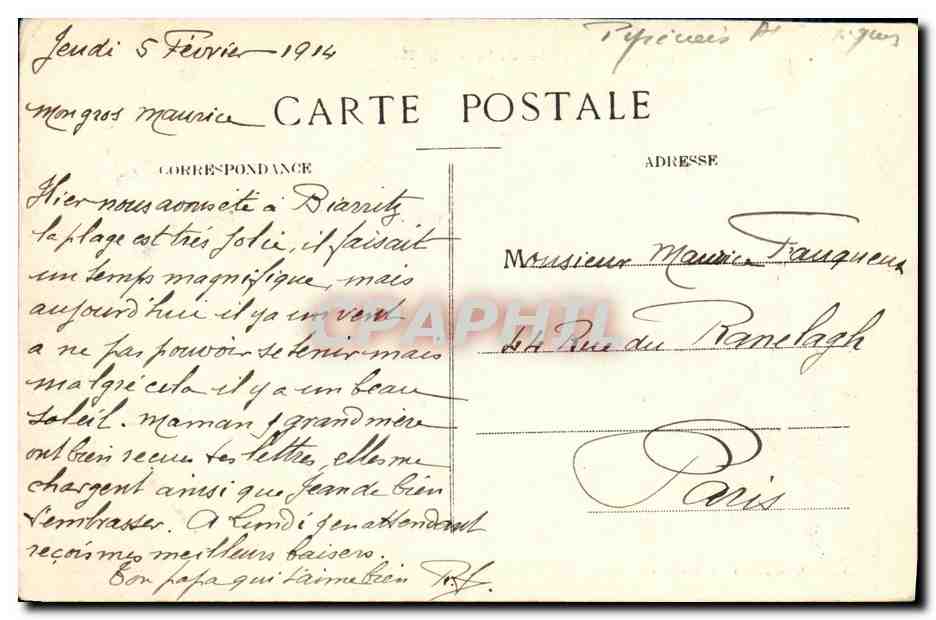 Jeudi 5 Février 1914
Mon gros Maurice
CARTE POSTALE
CORRESPONDANCE
Hier nous avons été à Biarritz
la plage est très jolie, il faisait
un temps magnifique, mais
aujourd'hui il y a un vent
a ne pas pouvoir se tenir mais
malgré cela il y a un beau
soleil. Maman & grand mère
ont bien recu tes lettres, elles me
chargent ainsi que Jean de bien
t'embrasser. A Lundi & en attendant
reçois mes meilleurs baisers.
Ton papa qui t'aime bien
ADRESSE
Monsieur Maurice Fauqueux
44 Rue du Ranelagh
Paris
CPAPHIL